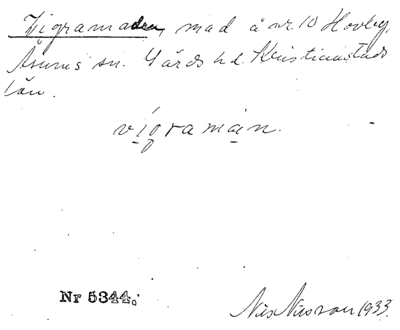 Vigramaden, mad å nr. 10 Hovby,
Åsums sn. Gärds hd. Kristianstads
län.
vigramän.
Nr 5344.
Nils Nilsson 1933.